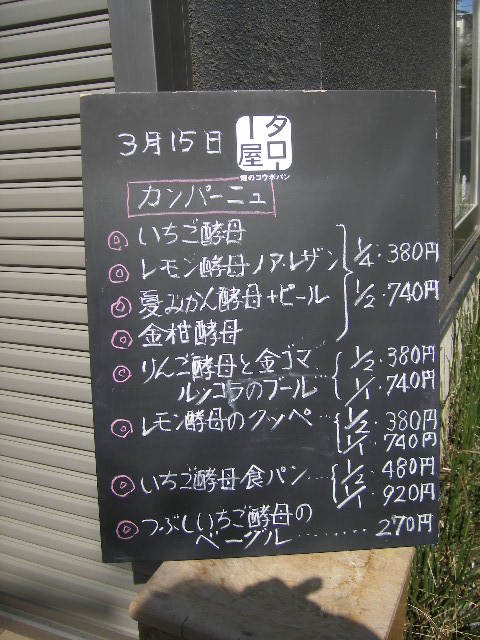 3月15日
タロー屋
畑のコウボパン
カンパーニュ
◎ いちご酵母
◎ レモン酵母ノア・レザン 1/4・380円
◎ 夏みかん酵母+ピール 1/2・740円
◎ 金柑酵母
◎ りんご酵母と金ゴマ 1/2・380円
ルッコラのブール 1/1・740円
◎ レモン酵母のクッペ 1/2・380円
1/1・740円
◎ いちご酵母食パン 1/2・480円
1/1・920円
◎ つぶしいちご酵母の
ベーグル 270円